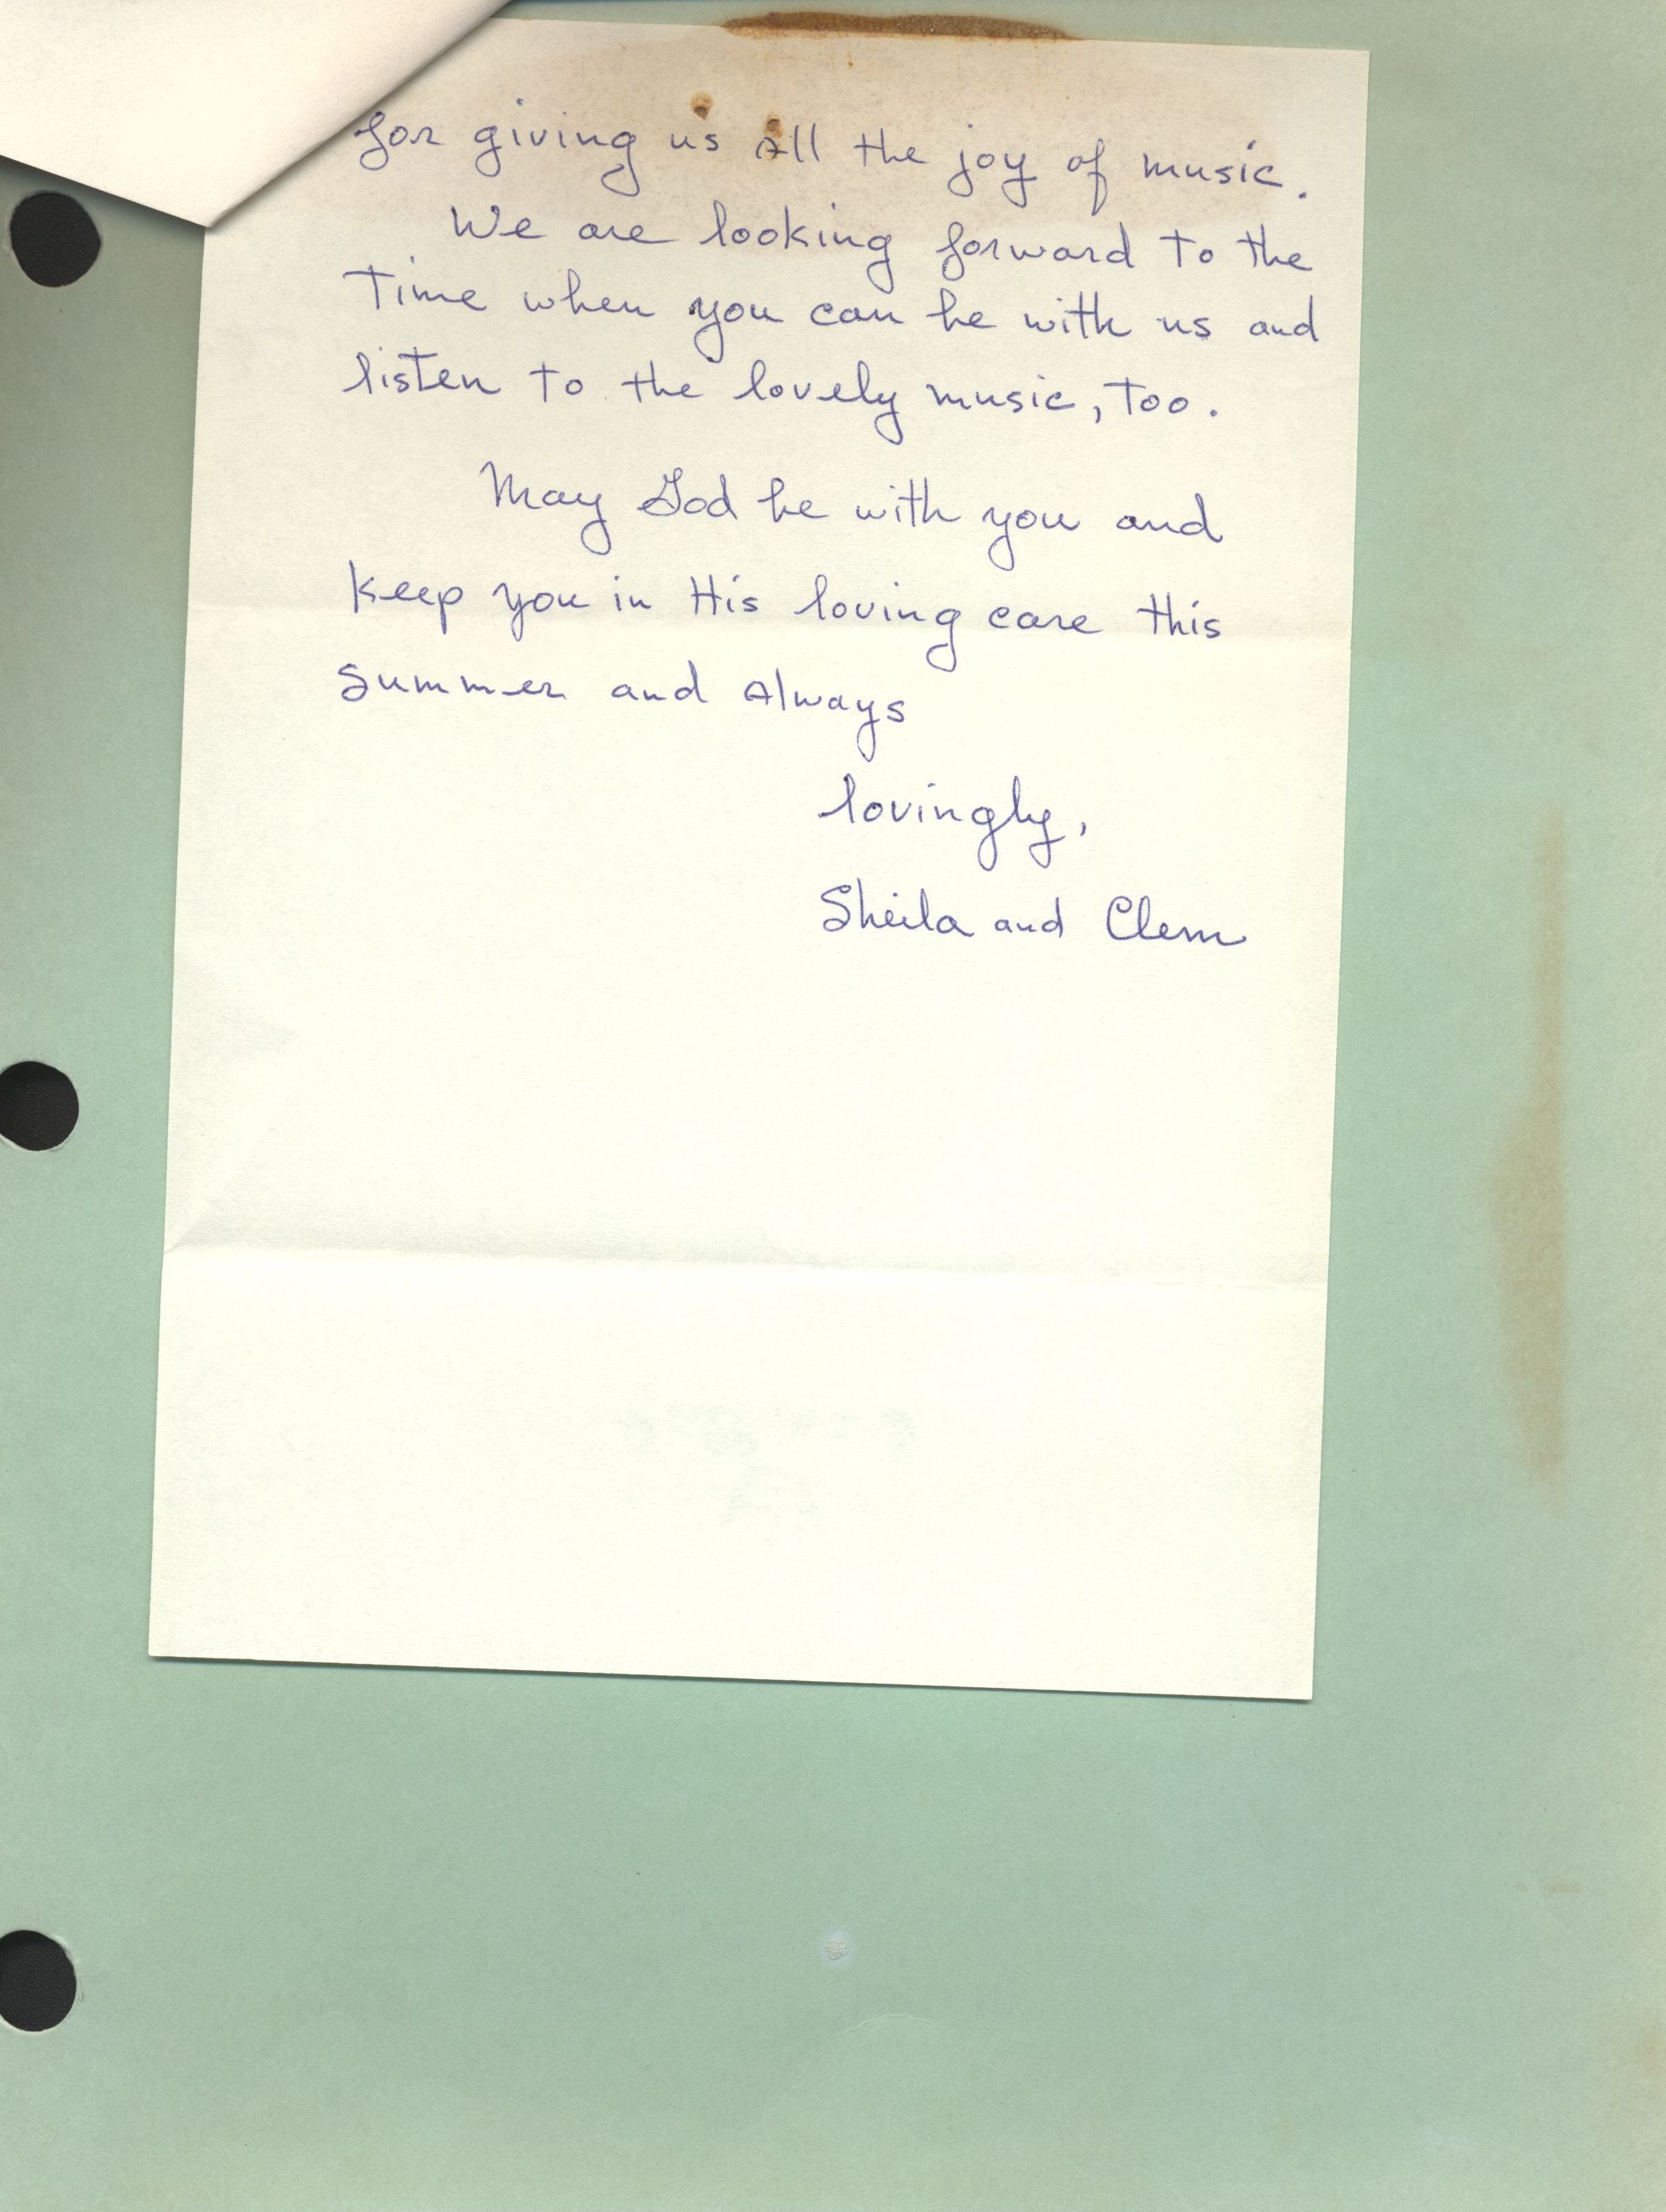 for giving us all the joy of music.
We are looking forward to the
Time when you can be with us and
listen to the lovely music, too.
May God be with you and
keep you in His loving care this
summer and always
lovingly,
Sheila and Clem